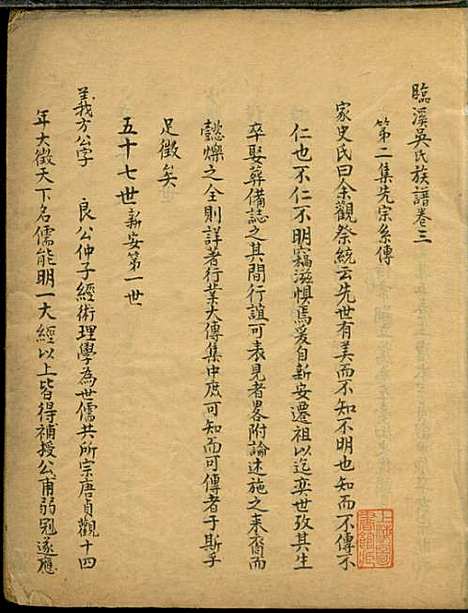 臨溪吳氏族譜卷三
第二集先宗系傳
家史氏曰余觀祭統云先世有美而不知不明也知而不傳不
仁也不仁不明竊滋懼焉爰自新安遷祖以迄奕世攷其生
卒娶葬備誌之其間行誼可表見者畧附論述施之来裔而
懿爍之全則詳著行業大傳集中庶可知而可傳者于斯乎
足徵矣
五十七世新安第一世
義方公字 良公仲子經術理學為世儒共所宗唐貞觀十四
年大徵天下名儒能明一大經以上皆得補授公甫弱冠遂應